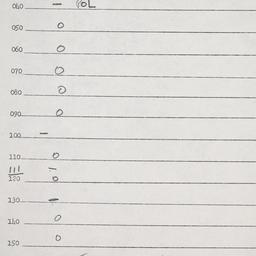 040 — POL
050 0
060 0
070 0
080 0
090 0
100 —
110 0
111 —
120 0
130 —
140 0
150 0